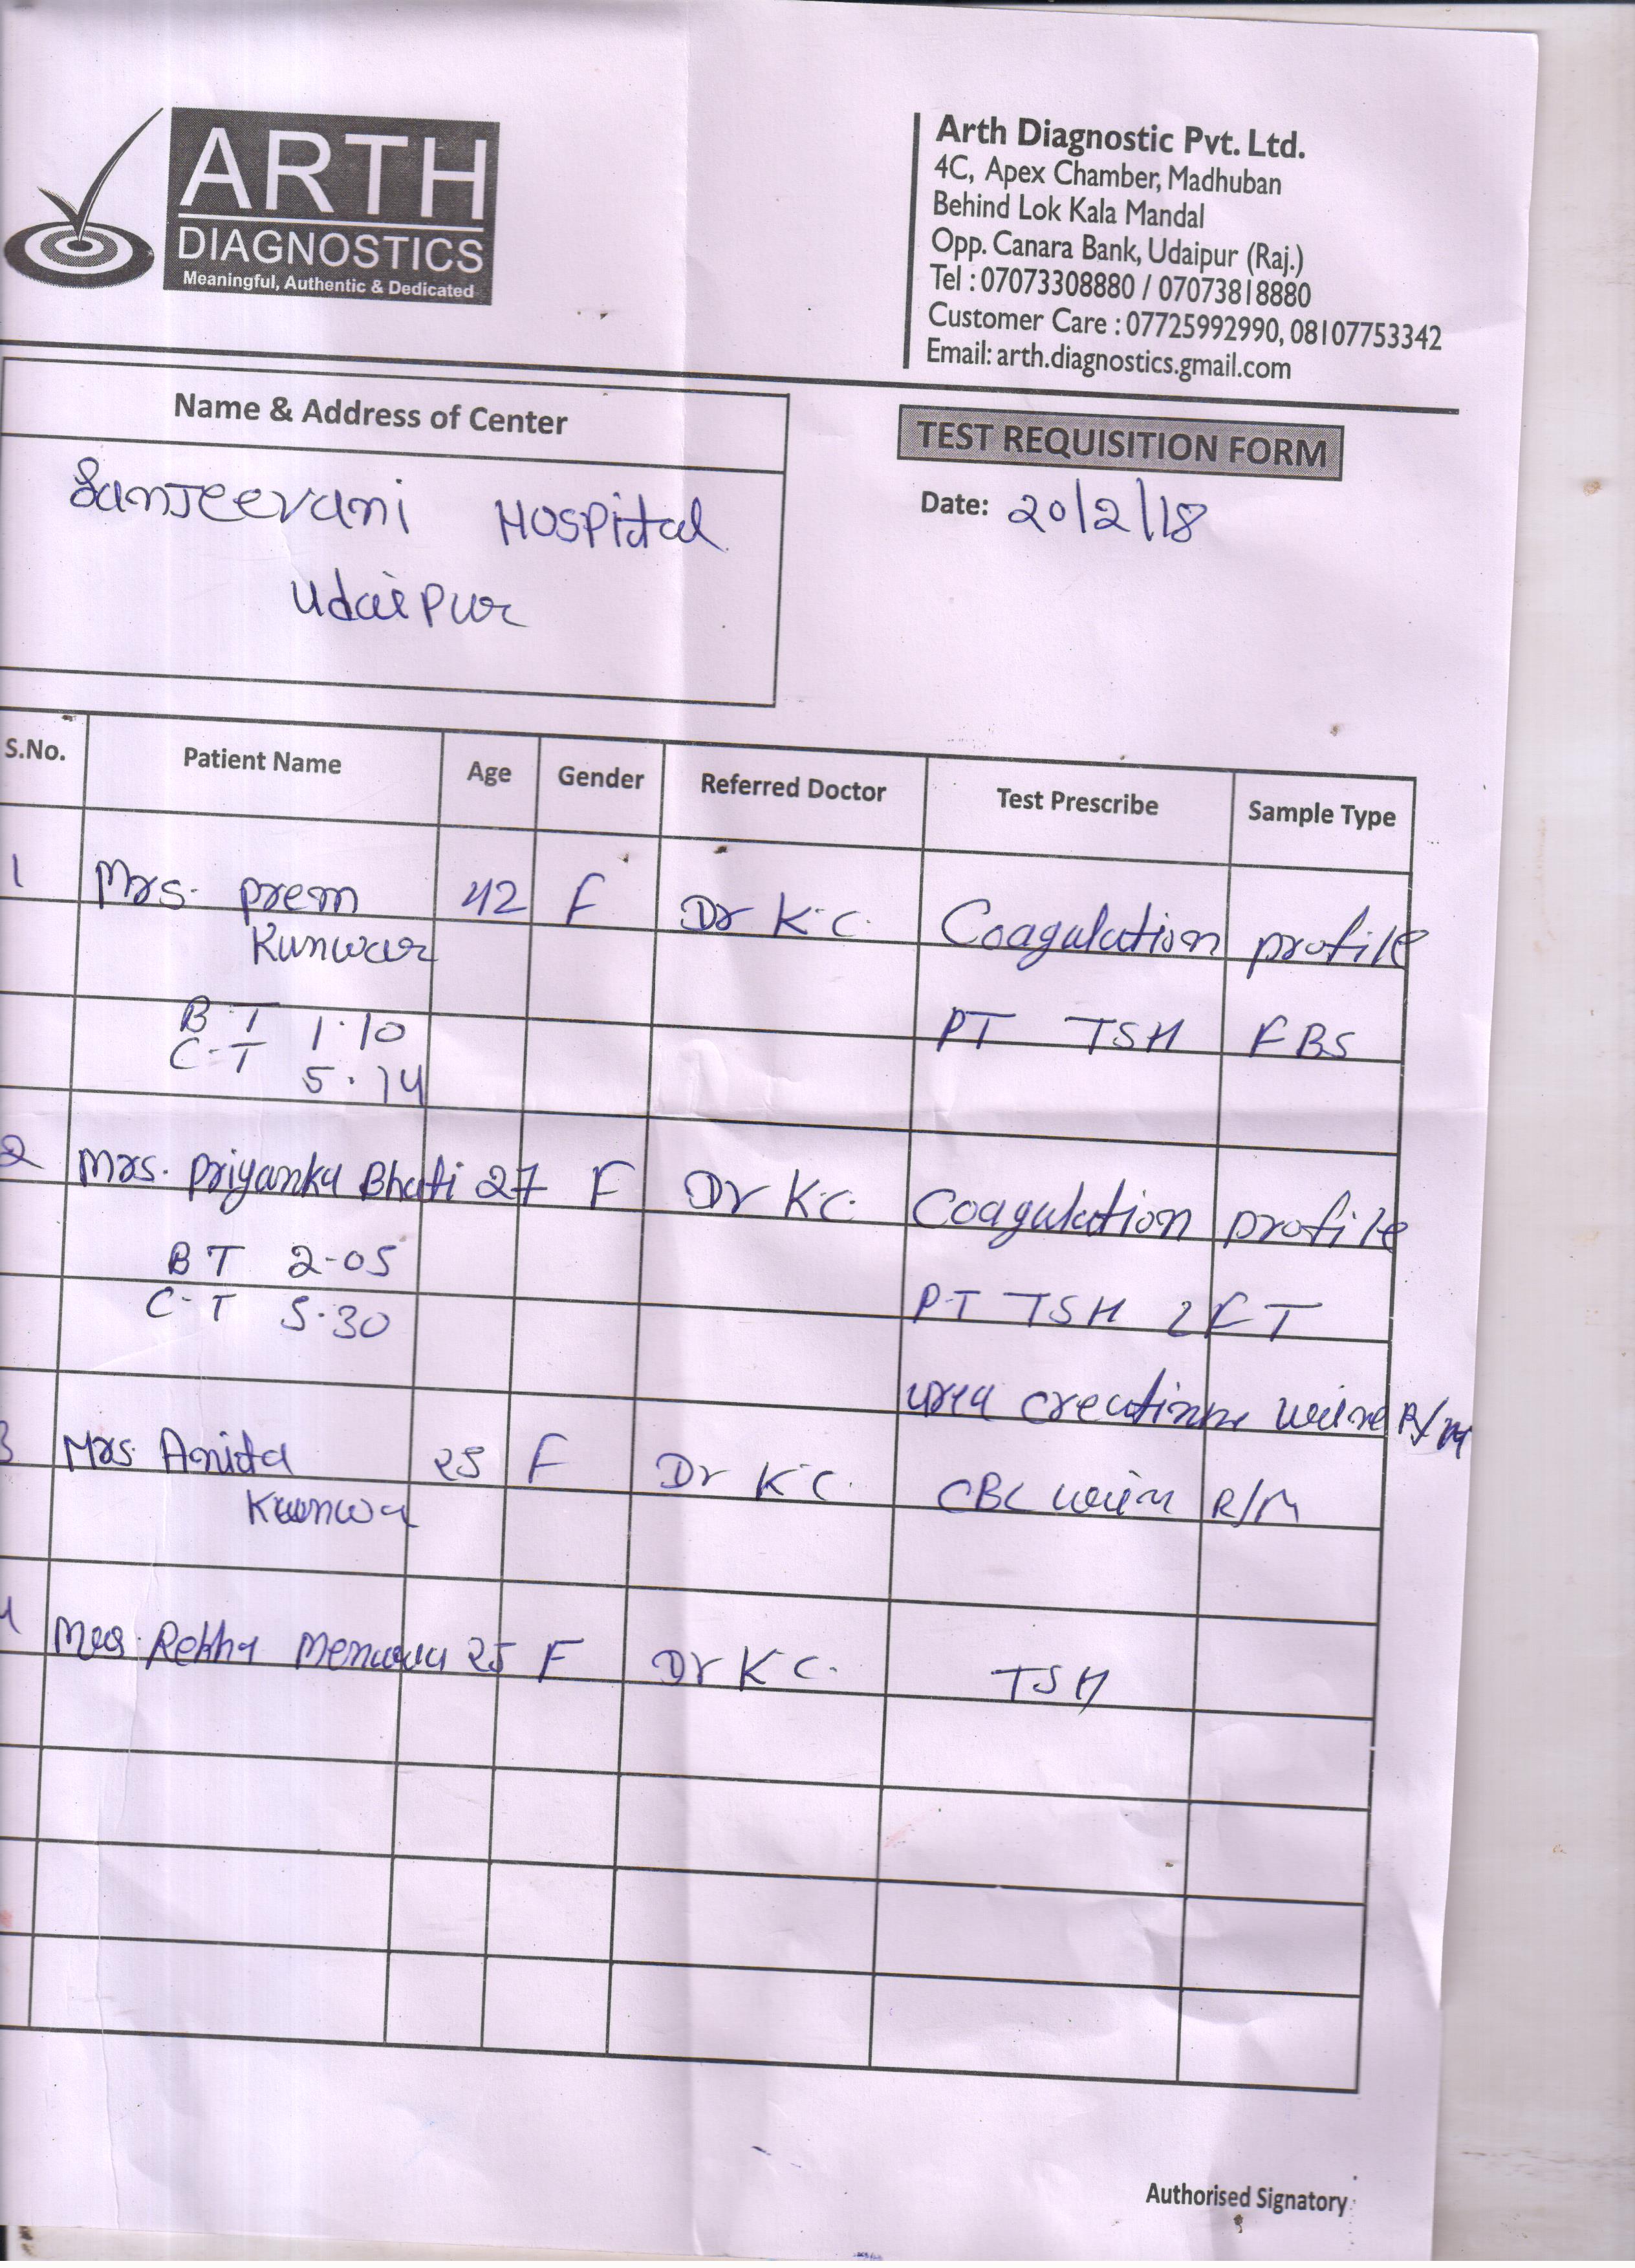 ARTH
DIAGNOSTICS
Meaningful, Authentic & Dedicated
Arth Diagnostic Pvt. Ltd.
4C, Apex Chamber, Madhuban
Behind Lok Kala Mandal
Opp. Canara Bank, Udaipur (Raj.)
Tel : 07073308880 / 07073818880
Customer Care : 07725992990, 08107753342
Email: arth.diagnostics.gmail.com
Name & Address of Center
TEST REQUISITION FORM
Sanjeevani Hospital
Udaipur
Date: 20/2/18
S.No. Patient Name Age Gender Referred Doctor Test Prescribe Sample Type
1 Mrs. Prem 42 F Dr K.C. Coagulation profile
Kunwar
B.T 1.10 PT TSH FBS
C-T 5.14
2 Mrs. Priyanka Bhati 27 F Dr K.C. Coagulation profile
BT 2-05
C-T 5.30 P.T TSH LFT
urea creatinine urine R/M
3 Mrs. Anita 25 F Dr K.C. CBC urine R/M
4 Mrs. Rekha 25 F Dr K C. TSH
Authorised Signatory